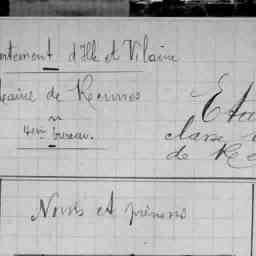 rtement d'Ille et Vilaine
Mairie de Rennes
4em bureau.
Eta
classe
de Re
Noms et prénoms